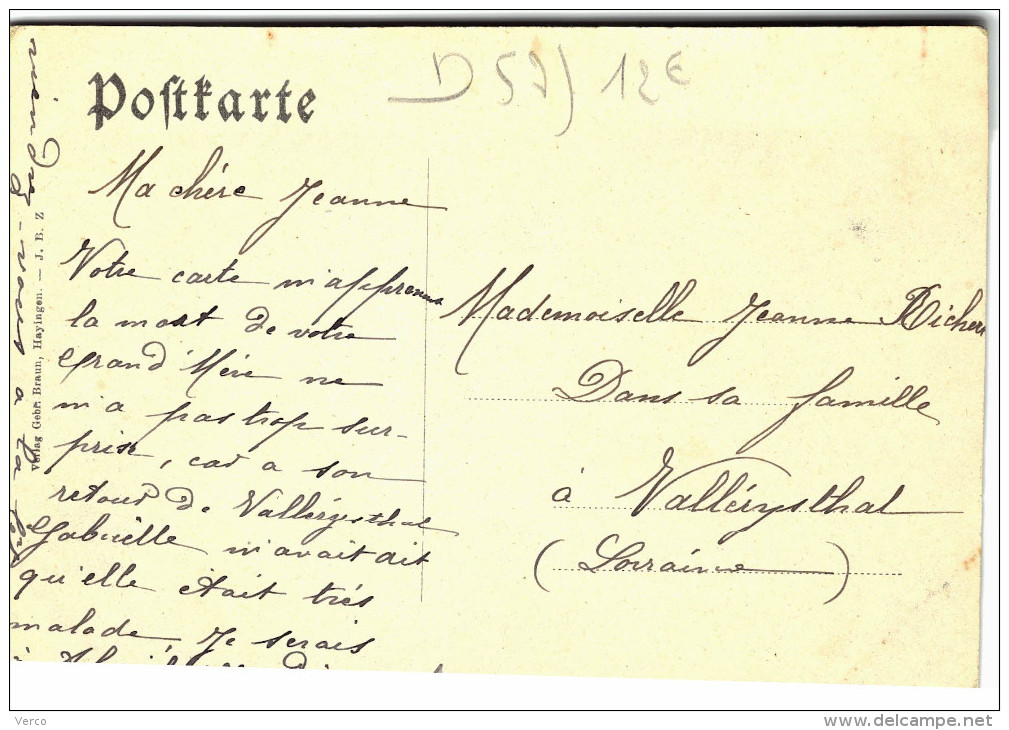 D 57) 12€
Postkarte
Ma chère Jeanne
Votre carte m'apprenant
la mort de votre
Grand' Mère ne
m'a pas trop sur-
prise, car a son
retour de Vallérysthal
Gabrielle m'avait dit
qu'elle était très
malade, Je serais
Mademoiselle Jeanne Richert
Dans sa famille
à Vallérysthal
(Lorraine)
Verlag Gebr. Braun, Hayingen. — J. B. Z
-vous a la
Verco
www.delcampe.net